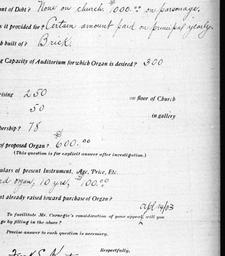 nt of Debt? None on church. $1000.00 on parsonage.
s it provided for? Certain amount paid on principal yearly.
ch built of? Brick.
g Capacity of Auditorium for which Organ is desired? 300
rising 250 on floor of Church
50 in gallery
bership? 78
of proposed Organ? $600.00
(This question is for explicit answer after investigation.)
ulars of present Instrument, Age, Price, Etc.
d organ, 10 yrs, $100.00
nt already raised toward purchase of Organ?
To facilitate Mr. Carnegie's consideration of your appeal, will you
ge by filling in the above?
Precise answer to each question is necessary.
Respectfully,